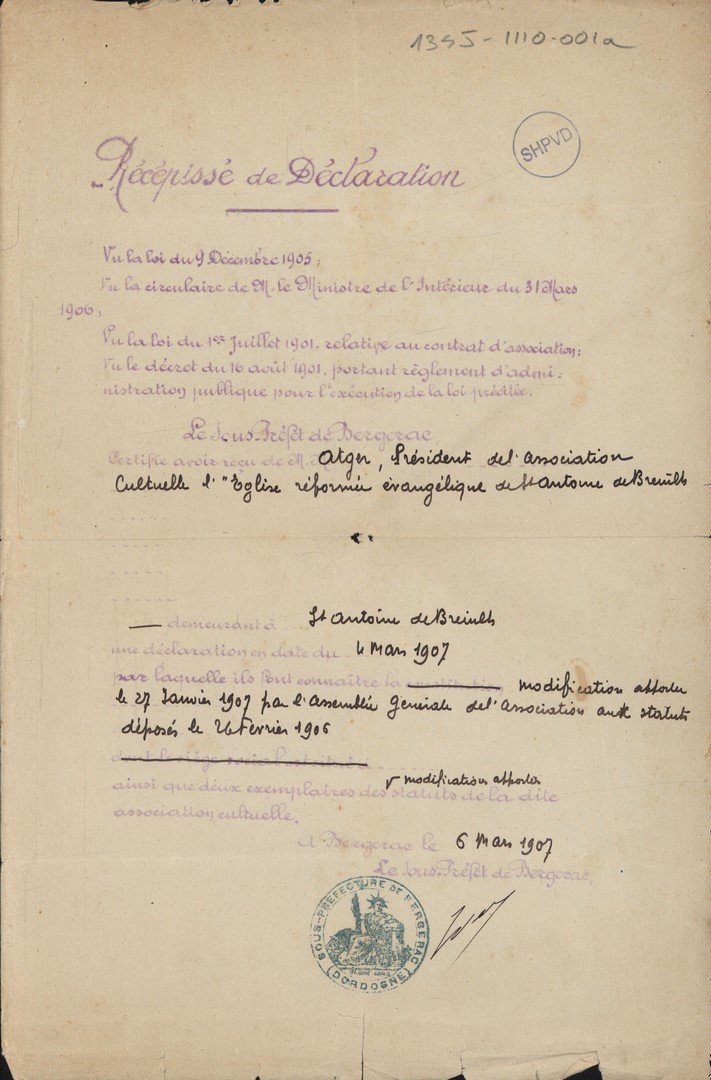 1345-1110-001a
SHPVD
Récépissé de Déclaration
Vu la loi du 9 Décembre 1905;
Vu la circulaire de M. le Ministre de l'Intérieur du 31 Mars
1906;
Vu la loi du 1er Juillet 1901, relative au contrat d'association;
Vu le décret du 16 août 1901, portant règlement d'admi-
nistration publique pour l'exécution de la loi précitée.
Le Sous-Préfet de Bergerac,
Certifie avoir reçu de M. Atger, Président de l'association
Cultuelle l'"Eglise réformée évangélique de St Antoine de Breuilh
demeurant à St Antoine de Breuilh
une déclaration en date du 4 Mars 1907
par laquelle ils font connaître la constitution modification apportée
le 27 Janvier 1907 par l'Assemblée Générale de l'Association aux statuts
déposés le 26 Février 1906
dont le siège social est situé à
modifications apportées
ainsi que deux exemplaires des statuts de la dite
association cultuelle.
A Bergerac le 6 Mars 1907
Le Sous-Préfet de Bergerac,
SOUS-PRÉFECTURE DE BERGERAC
(DORDOGNE)